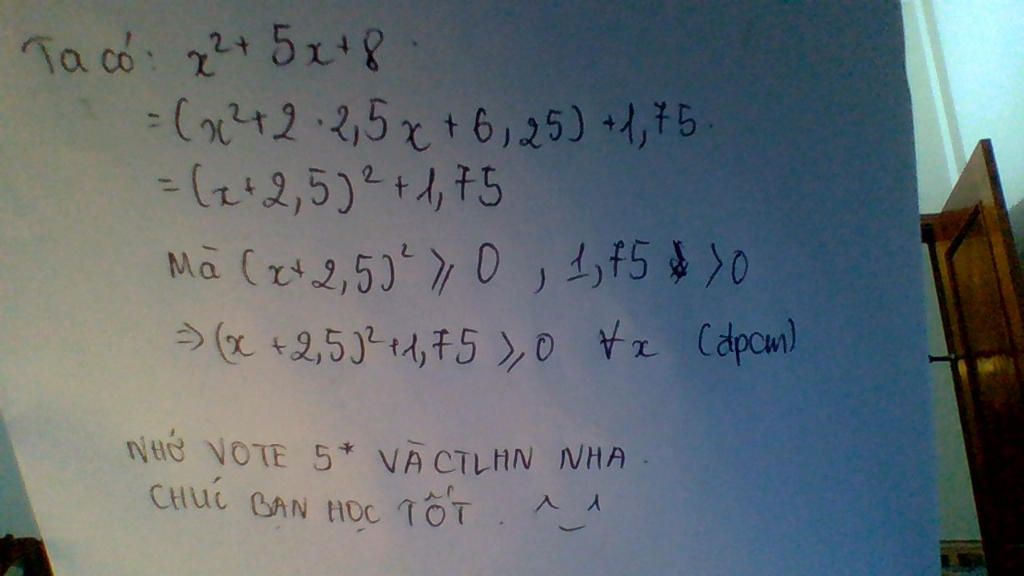 Ta có: x² + 5x + 8.
= (x² + 2 · 2,5x + 6,25) + 1,75.
= (x + 2,5)² + 1,75
Mà (x + 2,5)² ⩾ 0 , 1,75 > 0
⇒ (x + 2,5)² + 1,75 ⩾ 0 ∀x (đpcm)
NHỚ VOTE 5* VÀ CTLHN NHA.
CHÚC BẠN HỌC TỐT. ^_^